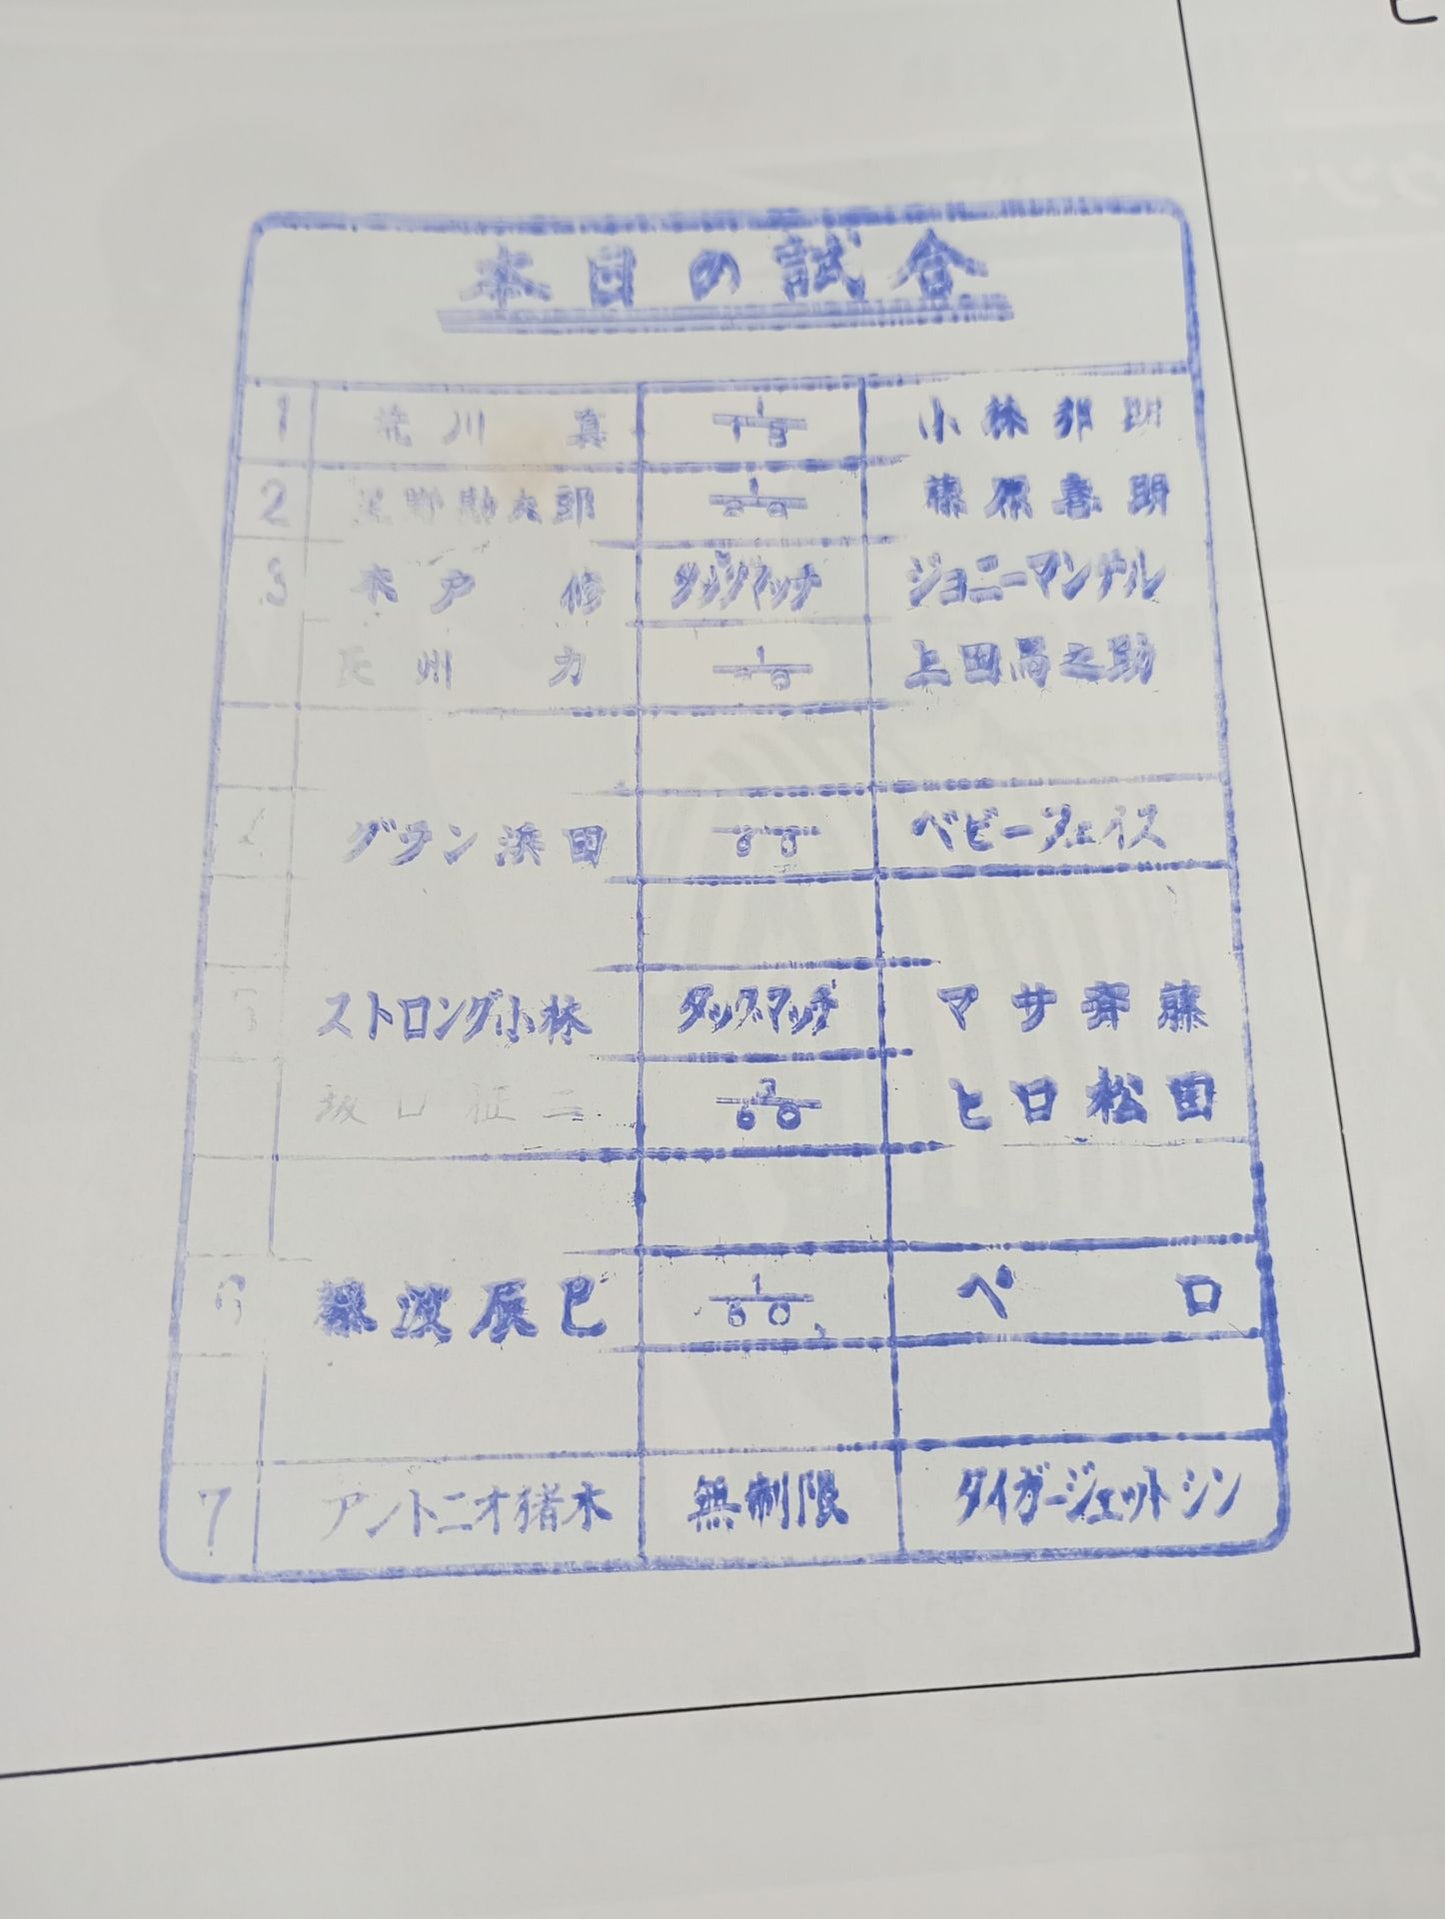 本日の試合
1 荒川真 1/15 小林邦昭
2 星野勘太郎 1/20 藤原喜明
3 木戸修 タッグマッチ ジョニーマンテル
長州力 1/20 上田馬之助
グラン浜田 ベビーフェイス
ストロング小林 タッグマッチ マサ斉藤
坂口征二 3/60 ヒロ松田
6 藤波辰巳 1/60 ペロ
7 アントニオ猪木 無制限 タイガージェットシン